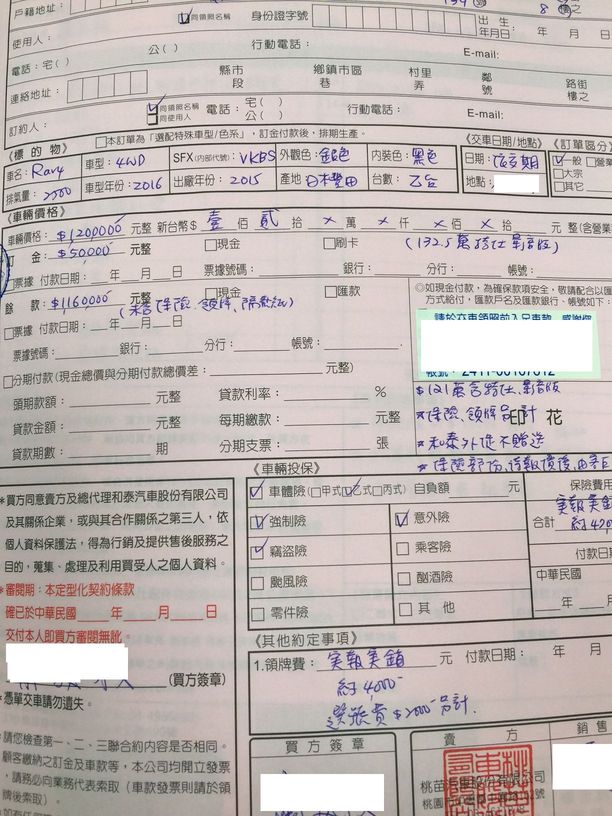 戶籍地址：
同領照名稱
身份證字號
出生年月日：
年 月 日
使用人：
電話：宅( ) 公( ) 行動電話： E-mail:
連絡地址：
縣市 鄉鎮市區 村里 鄰 路街
段 巷 弄 號 樓之
訂約人：
同領照名稱
同使用人
電話：宅( ) 公( ) 行動電話： E-mail:
《標的物》
本訂單為「選配特殊車型/色系」，訂金付款後，排期生產。
《交車日期/地點》
《訂單區分》
車名：Rav4 車型：4WD SFX(內部代號)：VKBS 外觀色：銀色 內裝色：黑色
日期：
一般 營業
排氣量：2500 車型年份：2016 出廠年份：2015 產地：日本豐田 台數：乙台
地點：
大宗
其它
《車輛價格》
車輛價格：$1200000 元整 新台幣$ 壹 佰 貳 拾 × 萬 × 仟 × 佰 × 拾 元整(含營業
訂金：$50000 元整 現金 刷卡
(132.5萬特仕影音版)
票據 付款日期： 年 月 日 票據號碼： 銀行： 分行： 帳號：
餘款：$1160000 元整 現金 匯款
(未含保險、領牌、隔熱紙)
◎如現金付款，為確保款項安全，敬請配合以匯
方式給付，匯款戶名及匯款銀行、帳號如下：
票據 付款日期： 年 月 日
請於交車領照前入足車款，感謝您
票據號碼： 銀行： 分行： 帳號：
分期付款(現金總價與分期付款總價差： 元整)
頭期款額： 元整 貸款利率： %
$121萬含特仕影音版
貸款金額： 元整 每期繳款： 元整
*保險、領牌另計
印花
貸款期數： 期 分期支票： 張
*和泰外促不贈送
《車輛投保》
車體險(甲式 乙式 丙式) 自負額 元
保險費用
強制險 意外險
實報實銷
合計： 約42,0
竊盜險 乘客險
付款日
颱風險 酗酒險
中華民國
零件險 其他
年 月
*買方同意賣方及總代理和泰汽車股份有限公司
及其關係企業，或與其合作關係之第三人，依
個人資料保護法，得為行銷及提供售後服務之
目的，蒐集、處理及利用買受人之個人資料。
*審閱期：本定型化契約條款
確已於中華民國 年 月 日
交付本人即買方審閱無訛。
(買方簽章)
*憑單交車請勿遺失。
《其他約定事項》
1.領牌費：實報實銷 元 付款日期： 年 月
約4,000
選號費$2000另計.
請您檢查第一、二、三聯合約內容是否相同。
顧客繳納之訂金及車款等，本公司均開立發票
，請務必向業務代表索取(車款發票則請於領
牌後索取)。
買方簽章
賣方
銷售
桃苗汽車股份有限公司